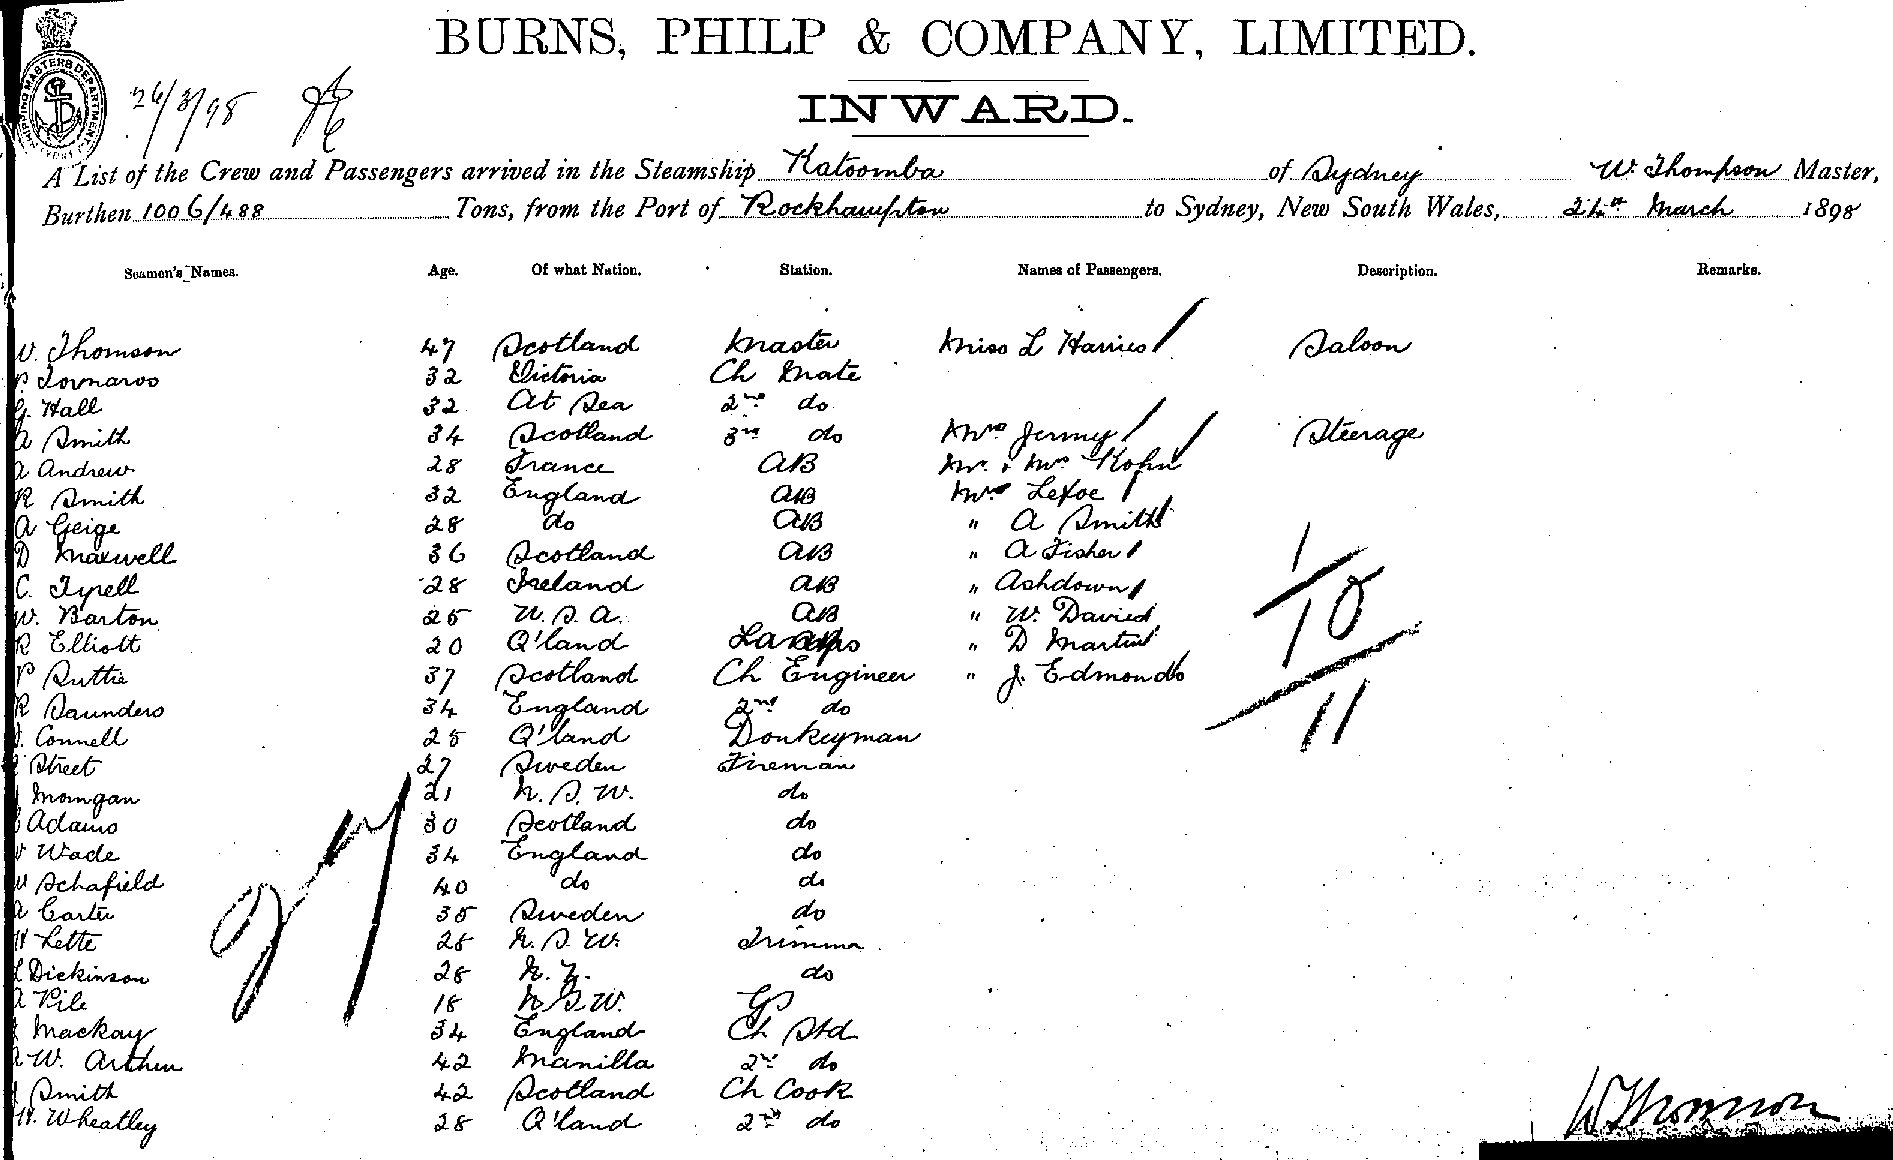 BURNS, PHILP & COMPANY, LIMITED.
INWARD.
SHIPPING MASTERS DEPARTMENT
26/3/98
A List of the Crew and Passengers arrived in the Steamship Katoomba of Sydney W. Thompson Master,
Burthen 1006/488 Tons, from the Port of Rockhampton to Sydney, New South Wales, 24th March 1898
Seamen's Names. Age. Of what Nation. Station. Names of Passengers. Description. Remarks.
W. Thomson 47 Scotland Master Miss L Harries Saloon
32 Victoria Ch Mate
G. Hall 32 At Sea 2nd do
A Smith 34 Scotland 3rd do Mrs Jermy Steerage
A Andrew 28 France AB Mr & Mrs Kohn
R Smith 32 England AB Mrs
A Geige 28 do AB " A Smith
D Maxwell 36 Scotland AB " A Fisher
C. Tyrell 28 Ireland AB " Ashdown
W. Barton 25 U.S.A. AB " W. Davies 1/10
R Elliott 20 Q'land Lamps " D Martin
P Suttie 37 Scotland Ch Engineer " J. Edmonds
R Saunders 34 England 2nd do 11
J. Connell 25 Q'land Donkeyman
Street 27 Sweden Fireman
21 N.S.W. do
Adams 30 Scotland do
Wade 34 England do
Schafield 40 do do
A Carter 35 Sweden do
27
H Lette 28 N.S.W. Trimmer
L Dickinson 28 N.Z. do
A Pile 18 N.S.W. GS
Mackay 34 England Ch Std
A W. Arthur 42 Manilla 2nd do
J Smith 42 Scotland Ch Cook
H. Wheatley 28 Q'land 2nd do
W Thomson